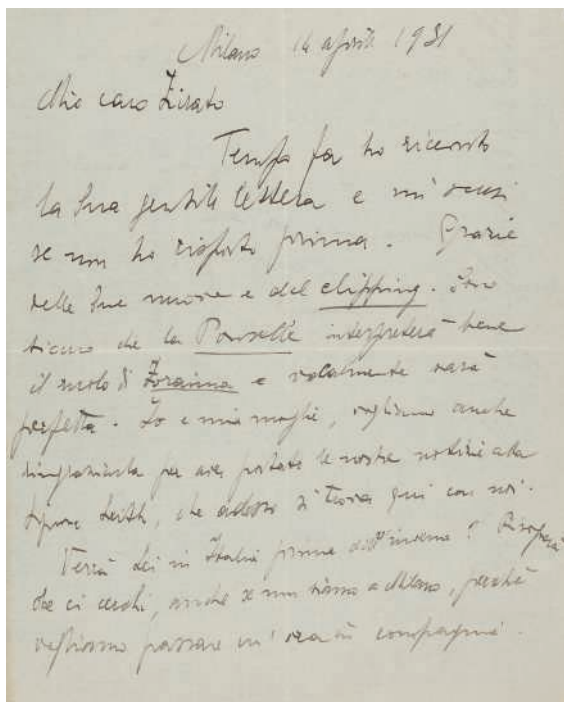 Milano 14 aprile 1931
Mio caro Zirato
Tempo fa ho ricevuto
la Sua gentile lettera e mi scusi
se non ho risposto prima. Grazie
delle Sue nuove e del clipping. Sono
sicuro che la Ponselle interpreterà bene
il ruolo di Zoraima e vocalmente sarà
perfetta. Io e mia moglie, vogliamo anche
ringraziarla per aver portato le nostre notizie alla
signora Leith, che adesso si trova qui con noi.
Verrà Lei in Italia prima dell'inverno? Bisognerà
che ci cerchi, anche se non siamo a Milano, perchè
vogliamo passare un'ora in compagnia.